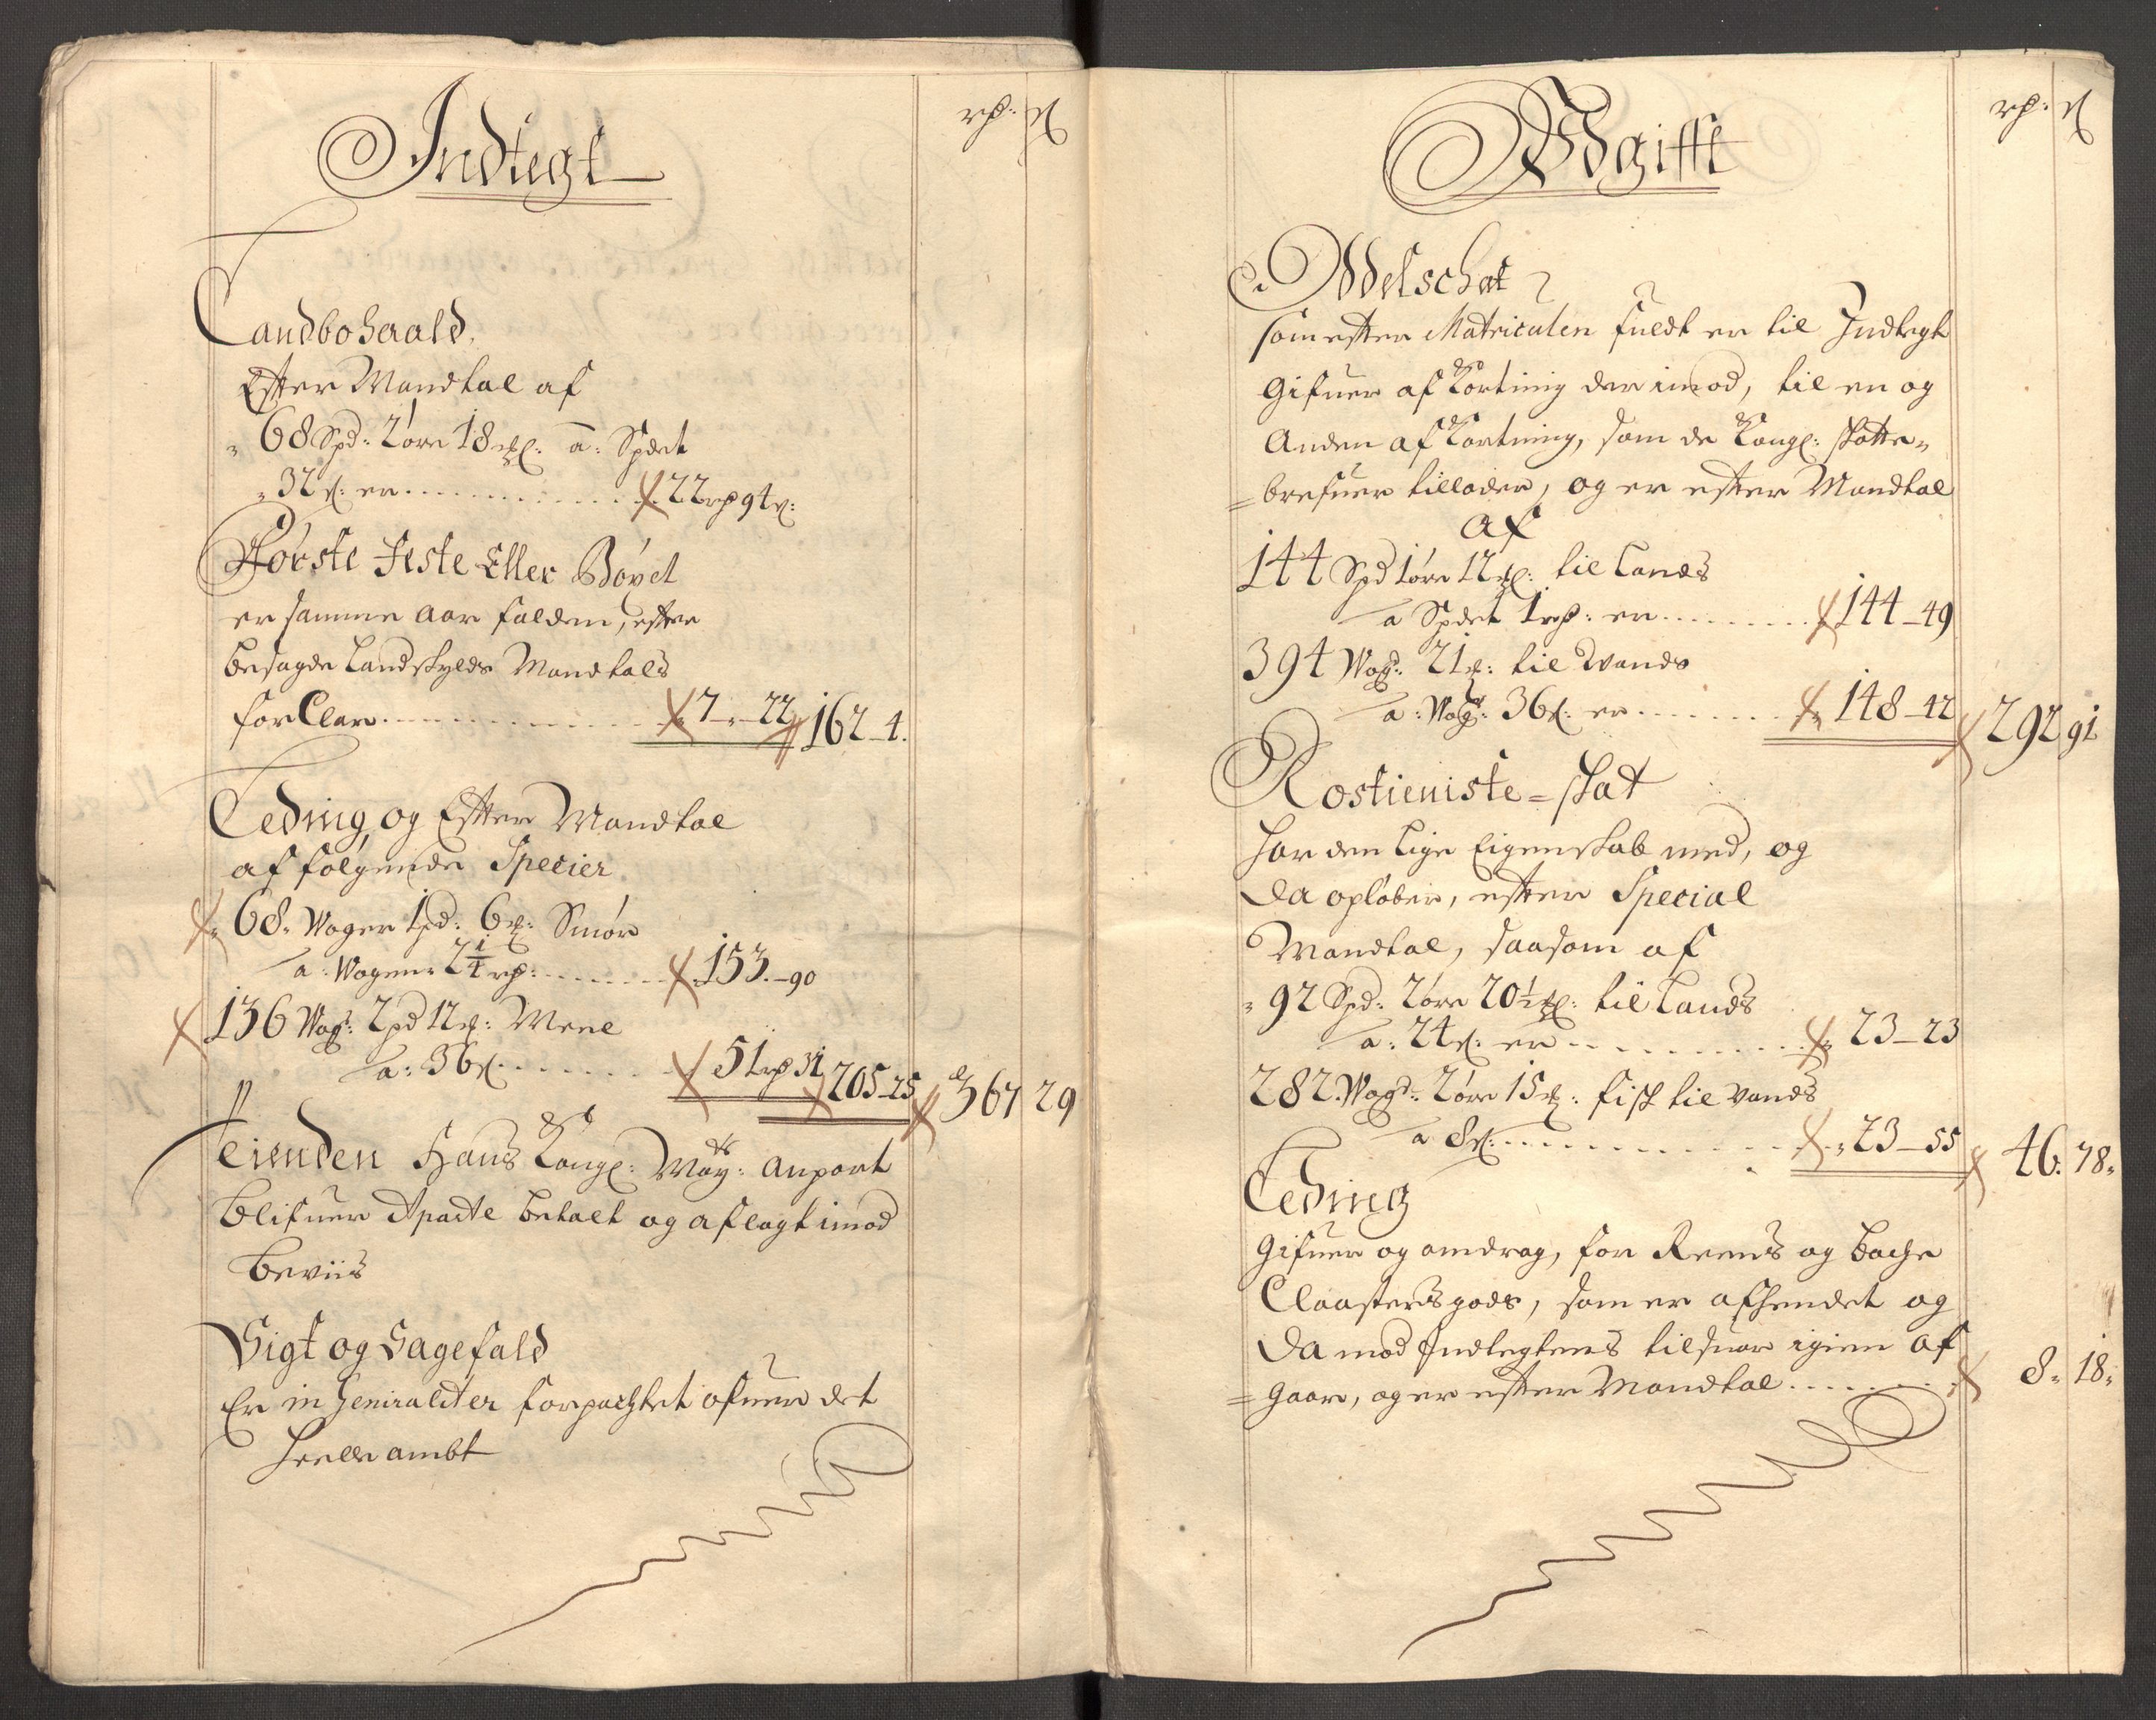 Indtegt
rd: ß
Landbohaald,
Efter Mandtal af
68 Spd: 2 øre 18 mkl: a: Spdet
32 ß: er . . . . . . . 22 rd 94 ß:
Første Feste Eller Bøxel
er samme aar falden, efter
besagde Landskylds Mandtals
forClar . . . . . . . 7 - 22 162 - 4.
Leding og Efter Mandtal
af følgende Specier
68. Woger 1 pd: 6 mk: Smør
a: Wogen 2 1/4 rd: . . . . . 153. - 90
136 Wog: 2 pd 12 mk: Meel
a: 36 ß . . . . . 51 rd 31 205 - 25 367 29
Teienden Hans Kongl: May: anpart
blifuer Aparte betalt og aflagt imod
beviis
Sigt og Sagefald
Er in Generaliter forpachtet ofuer det
heele ambt
Udgifft
rd: ß
Odelschat
som efter Matriculen fuldt er til Indtegt
Gifuer afKortning der imod, til en og
Anden afKortning, som de Kongl: skatte-
brefuer tillader, og er efter Mandtal
af
144 Spd 1 øre 12 mkl: til Lands
a Spdet 1 rd: er . . . . . . 144 - 49
394 Wog: 21 mk: til Wands
a: Wog: 36 ß: er . . . . . . 148 - 42 292 91
Rostieniste-skat
har den lige Eigenskab med, og
da opløber, efter Special
Mandtal, saasom af
92 Spd: 2 øre 20 1/2 mkl: til Lands
a: 24 ß: er . . . . . . 23 - 23
282. Wog: 2 øre 15 mk: fisk til Vands
a 8 ß: . . . . . . 23 - 55 46. 78.
Leding
Gifuer og omdrag, for Reens og Bache
Claasters gods, som er afhendet og
da mod Indtegtens tilsuar igien af
gaar, og er efter Mandtal . . . . . 8. 18.